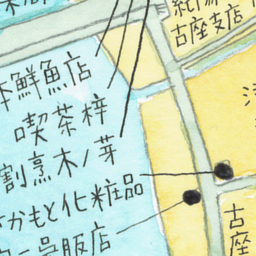 古座支店
本鮮魚店
喫茶梓
割烹木ノ芽
かもと化粧品
販店
古座